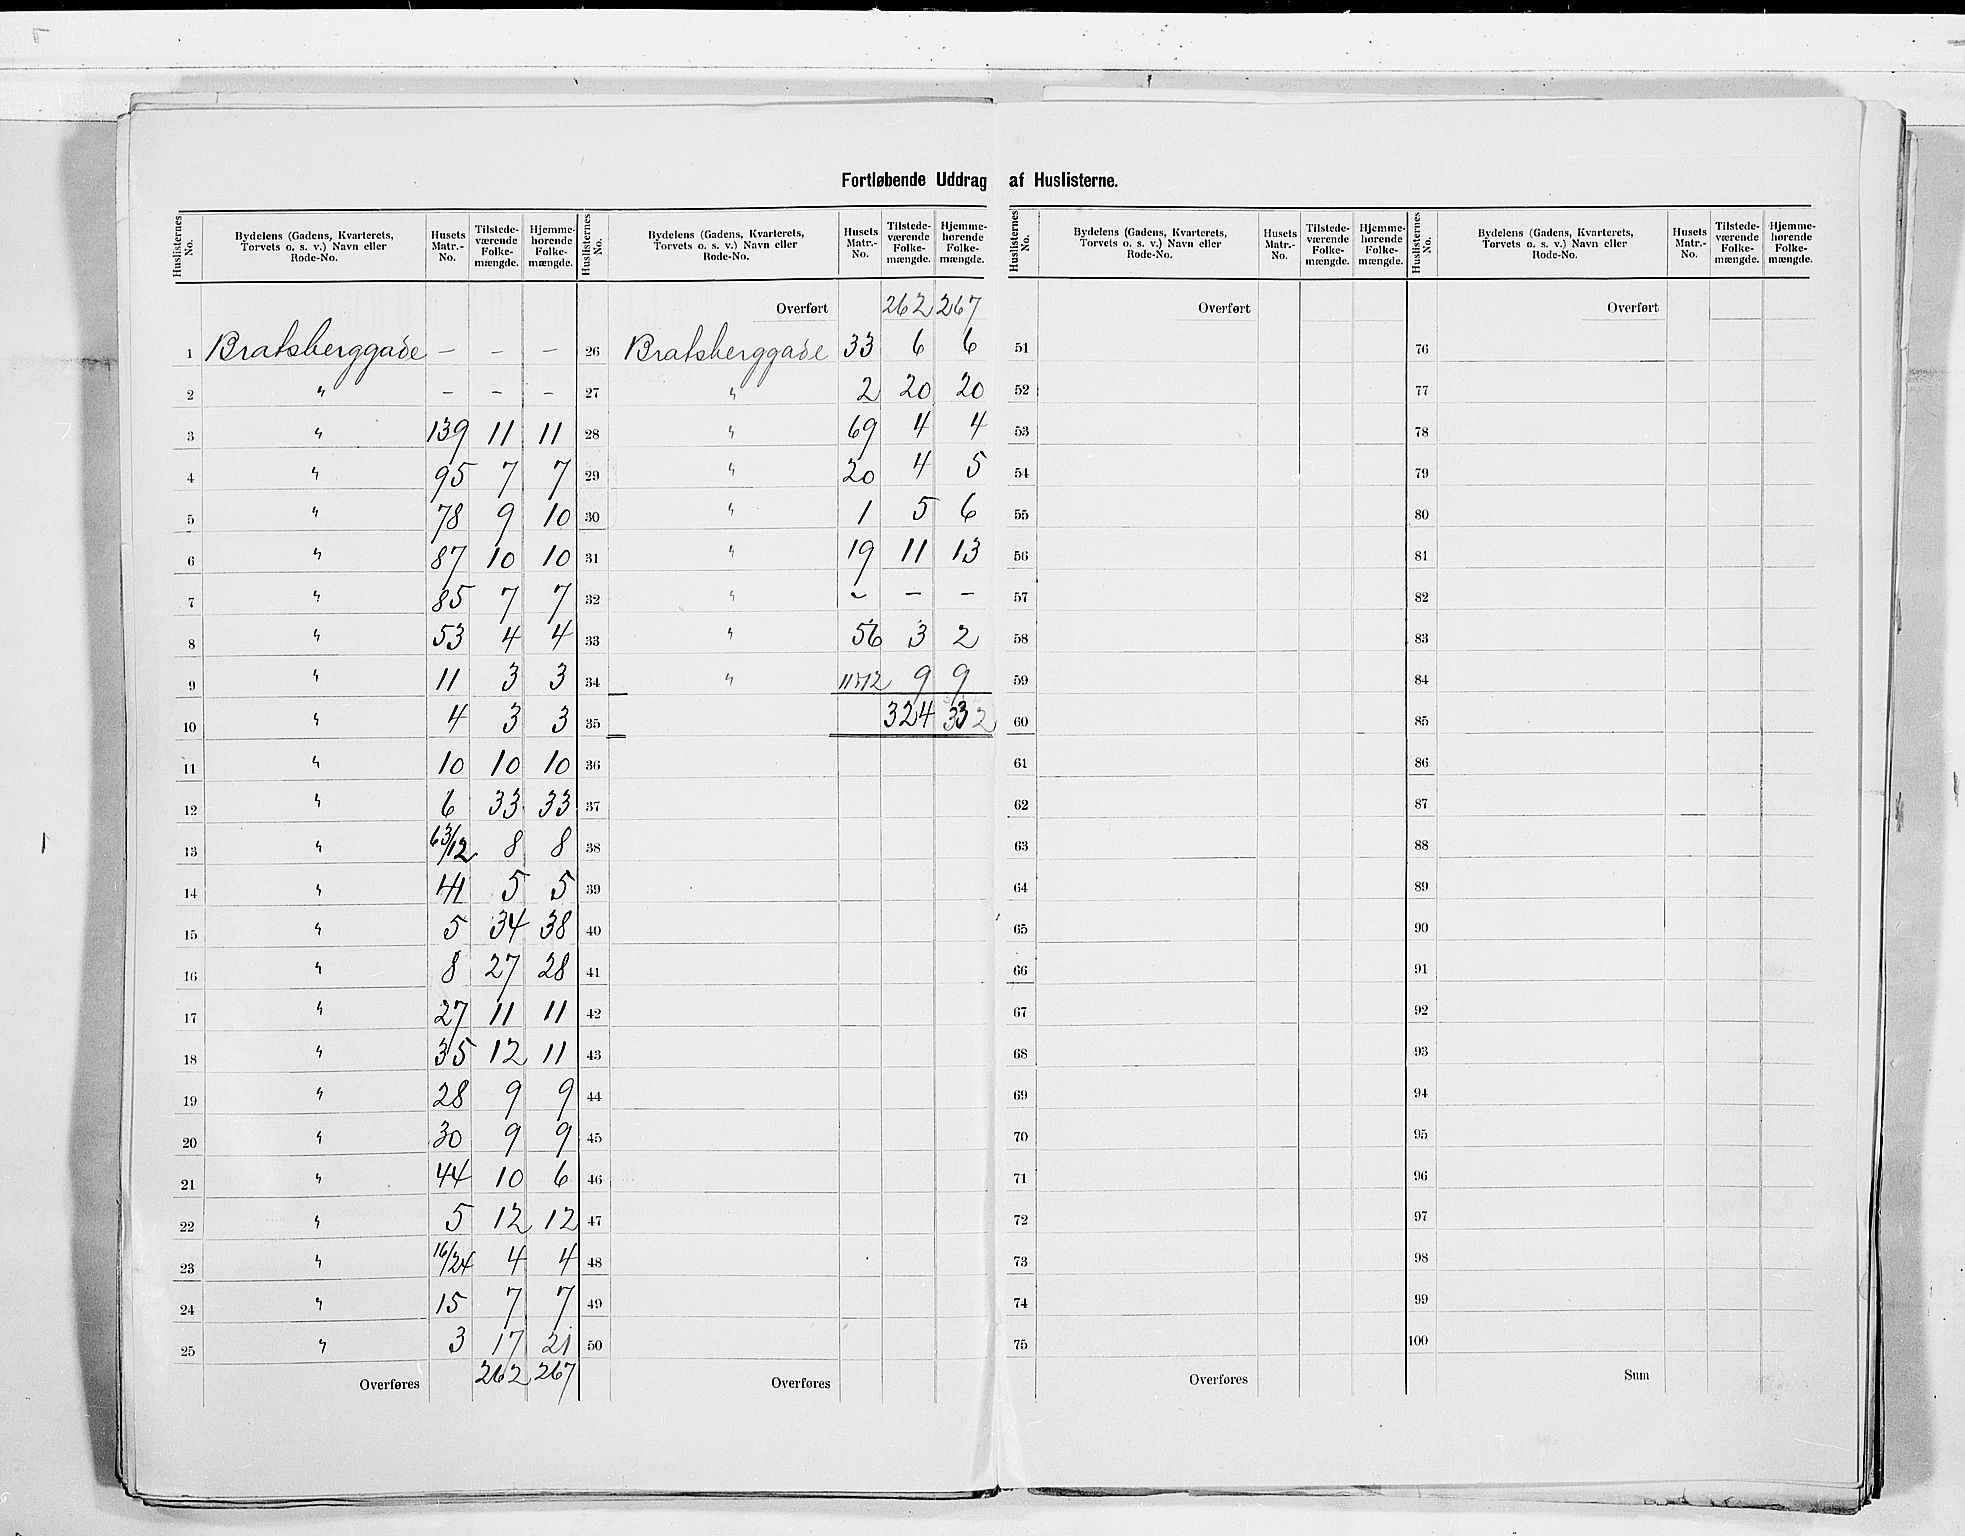 Fortløbende Uddrag af Huslisterne.
Huslisternes No. | Bydelens (Gadens, Kvarterets, Torvets o. s. v.) Navn eller Rode-No. | Husets Matr.-No. | Tilstedeværende Folkemængde. | Hjemmehørende Folkemængde.
1 Bratsberggade - - -
2 " - - -
3 " 139 11 11
4 " 95 7 7
5 " 78 9 10
6 " 87 10 10
7 " 85 7 7
8 " 53 4 4
9 " 11 3 3
10 " 4 3 3
11 " 10 10 10
12 " 6 33 33
13 " 63/12 8 8
14 " 41 5 5
15 " 5 34 38
16 " 8 27 28
17 " 27 11 11
18 " 35 12 11
19 " 28 9 9
20 " 30 9 9
21 " 44 10 6
22 " 5 12 12
23 " 16/24 4 4
24 " 15 7 7
25 " 3 17 21
Overføres 262 267
Huslisternes No. | Bydelens (Gadens, Kvarterets, Torvets o. s. v.) Navn eller Rode-No. | Husets Matr.-No. | Tilstedeværende Folkemængde. | Hjemmehørende Folkemængde.
Overført 262 267
26 Bratsberggade 33 6 6
27 " 2 20 20
28 " 69 4 4
29 " 20 4 5
30 " 1 5 6
31 " 19 11 13
32 " - - -
33 " 56 3 2
34 " 9 9
35 324 332
36
37
38
39
40
41
42
43
44
45
46
47
48
49
50
Overføres
Huslisternes No. | Bydelens (Gadens, Kvarterets, Torvets o. s. v.) Navn eller Rode-No. | Husets Matr.-No. | Tilstedeværende Folkemængde. | Hjemmehørende Folkemængde.
Overført
51
52
53
54
55
56
57
58
59
60
61
62
63
64
65
66
67
68
69
70
71
72
73
74
75
Overføres
Huslisternes No. | Bydelens (Gadens, Kvarterets, Torvets o. s. v.) Navn eller Rode-No. | Husets Matr.-No. | Tilstedeværende Folkemængde. | Hjemmehørende Folkemængde.
Overført
76
77
78
79
80
81
82
83
84
85
86
87
88
89
90
91
92
93
94
95
96
97
98
99
100
Sum